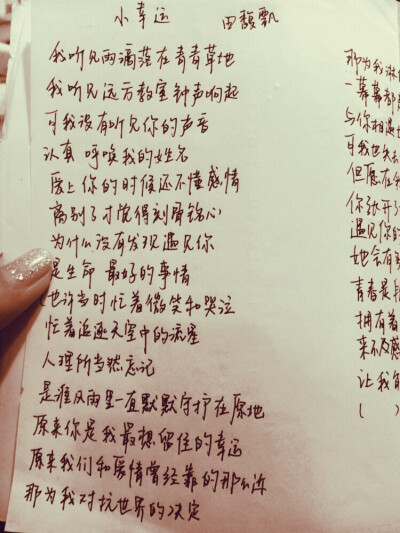 小幸运 田馥甄
我听见雨滴落在青青草地
我听见远方教室钟声响起
可我没有听见你的声音
认真 呼唤我的姓名
爱上你的时候还不懂感情
离别了才觉得刻骨铭心
为什么没有发现遇见你
是生命 最好的事情
(也许当时忙着微笑和哭泣
忙着追逐天空中的流星
人理所当然忘记
是谁风雨里一直默默守护在原地
原来你是我最想留住的幸运
原来我们和爱情曾经靠的那么近
那为我对抗世界的决定
那为我淋
一幕幕都
与你相遇
可我也失
但愿在我
你张开
遇见你的
她会有
青春是
拥有着
来不及感
让我
( )